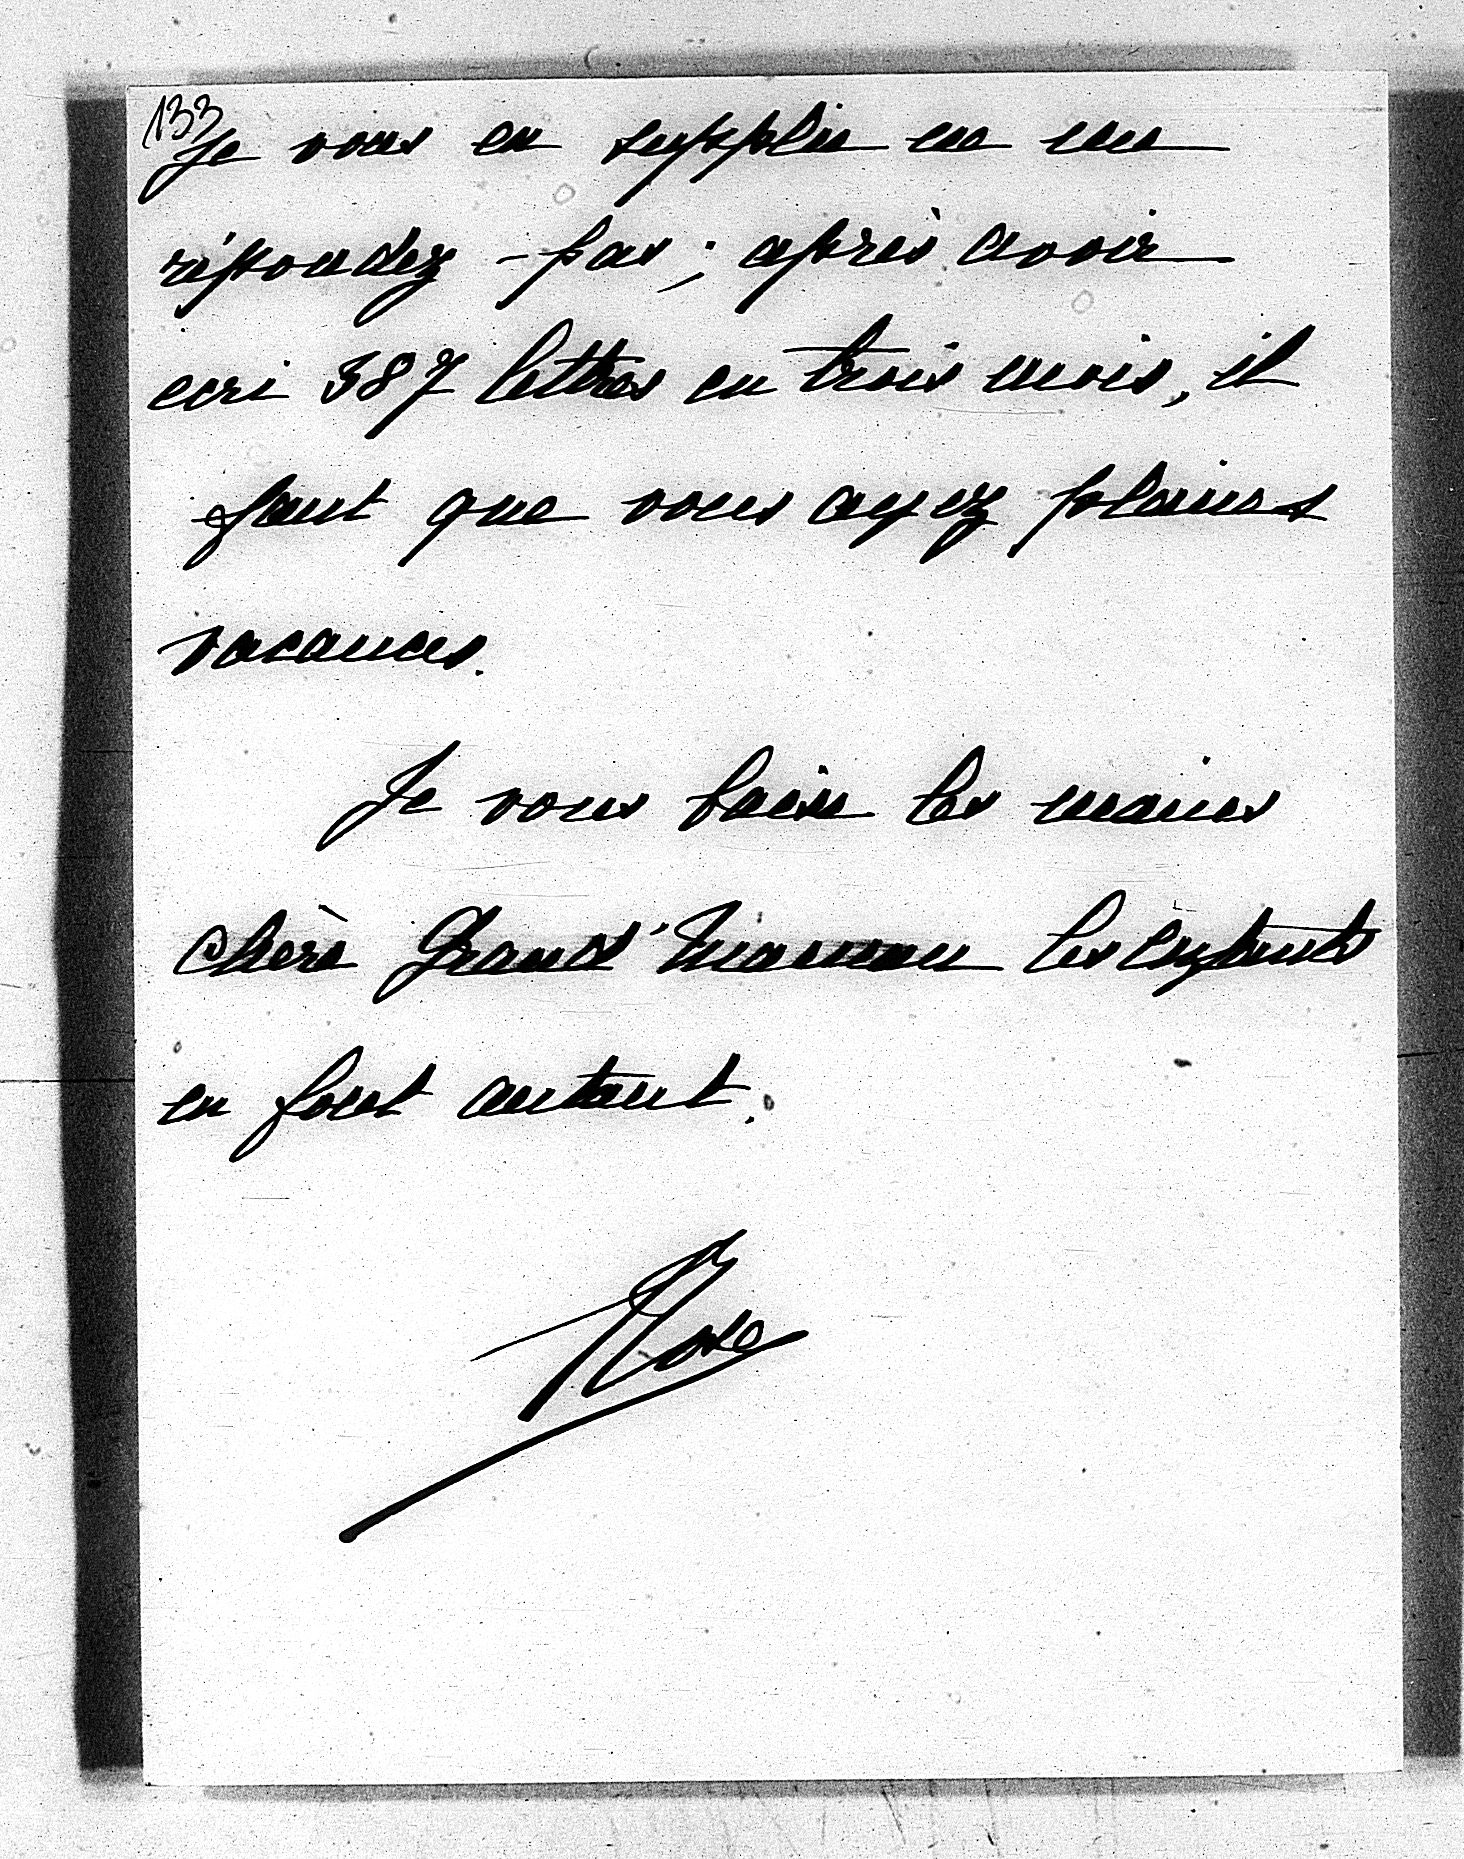 133
Je vous en supplie ne me
répondez-pas; après avoir
ecri 387 lettres en trois mois, il
faut que vous ayez plaines
vacances.
Je vous baise les mains
chère Grand'Maman les enfants
en font autant.
Rose